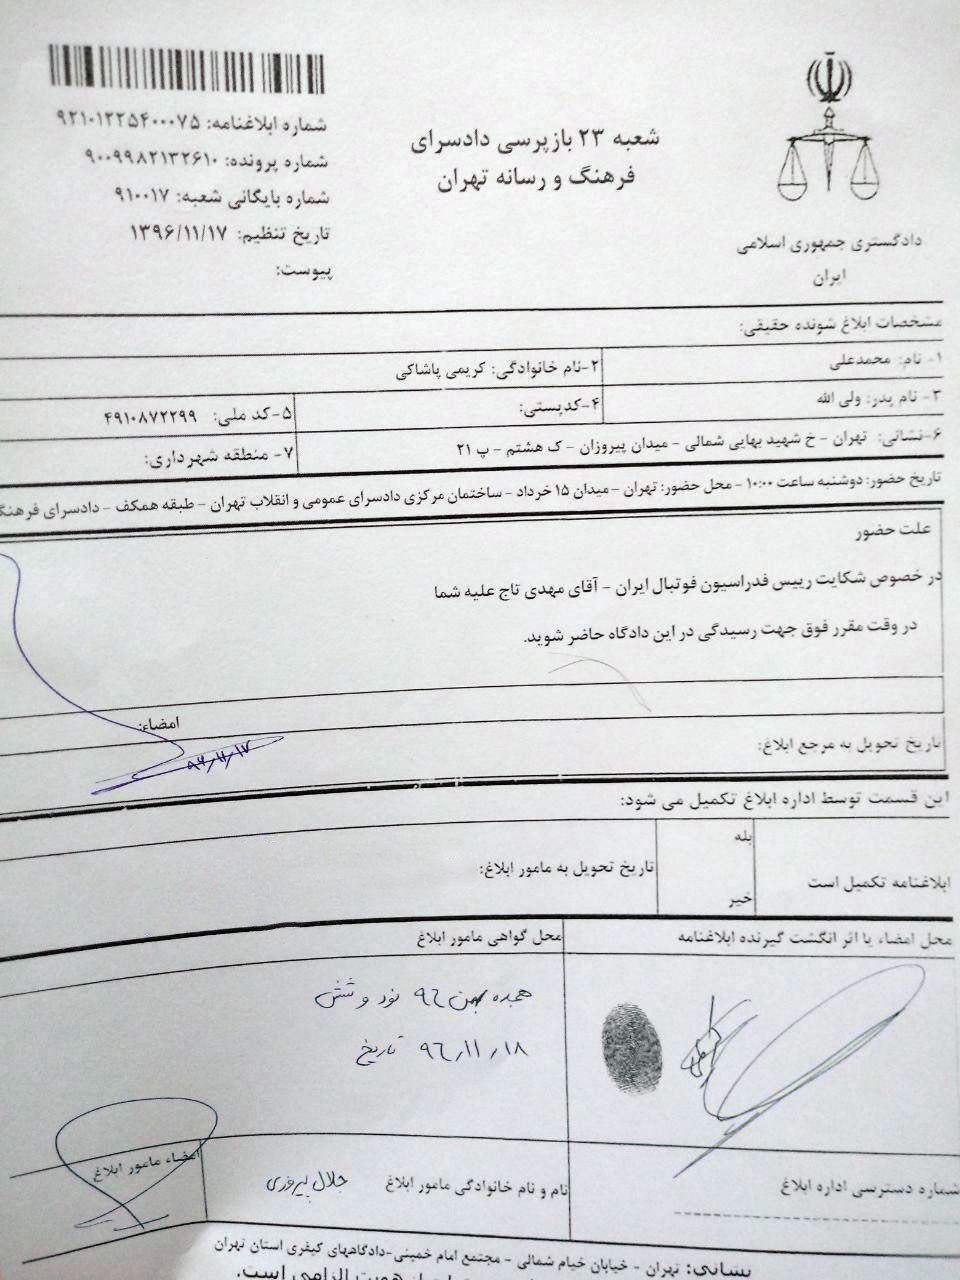 شماره ابلاغنامه: ۹۲۱۰۱۲۲۵۴۰۰۰۷۵
شماره پرونده: ۹۰۰۹۹۸۲۱۳۲۶۱۰
شماره بایگانی شعبه: ۹۱۰۰۱۷
تاریخ تنظیم: ۱۳۹۶/۱۱/۱۷
پیوست:
شعبه ۲۳ بازپرسی دادسرای
فرهنگ و رسانه تهران
دادگستری جمهوری اسلامی
ایران
مشخصات ابلاغ شونده حقیقی:
۱- نام: محمدعلی
۲-نام خانوادگی: کریمی پاشاکی
۳- نام پدر: ولی الله
۴-کدپستی:
۵-کد ملی: ۴۹۱۰۸۷۲۲۹۹
۶-نشانی: تهران - خ شهید بهایی شمالی - میدان پیروزان - ک هشتم - پ ۲۱
۷- منطقه شهرداری:
تاریخ حضور: دوشنبه ساعت ۱۰:۰۰ - محل حضور: تهران - میدان ۱۵ خرداد - ساختمان مرکزی دادسرای عمومی و انقلاب تهران - طبقه همکف - دادسرای فرهنگ
علت حضور
در خصوص شکایت رییس فدراسیون فوتبال ایران - آقای مهدی تاج علیه شما
در وقت مقرر فوق جهت رسیدگی در این دادگاه حاضر شوید.
امضاء:
۹۶/۱۱/۱۷
تاریخ تحویل به مرجع ابلاغ:
این قسمت توسط اداره ابلاغ تکمیل می شود:
ابلاغنامه تکمیل است
بله
خیر
تاریخ تحویل به مامور ابلاغ:
محل امضاء یا اثر انگشت گیرنده ابلاغنامه
محل گواهی مامور ابلاغ
هجده بهمن ۹۶ نود و شش
۹۶/۱۱/۱۸ تاریخ
شماره دسترسی اداره ابلاغ
نام و نام خانوادگی مامور ابلاغ
جلال پیروزی
امضاء مامور ابلاغ
نشانی: تهران - خیابان خیام شمالی - مجتمع امام خمینی-دادگاههای کیفری استان تهران
هویت الزامی است.